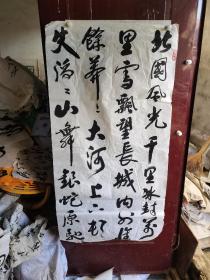 北國風光千里冰封萬
里雪飄望長城內外惟
餘莽〻大河上下頓
失滔〻山舞銀蛇原馳